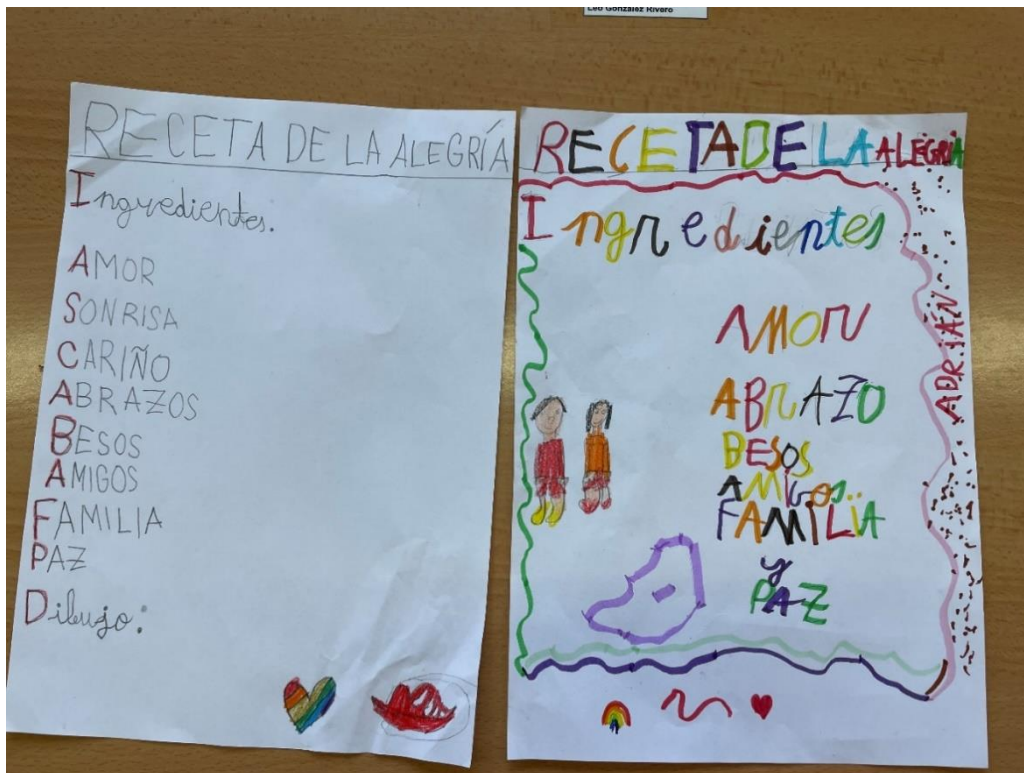 Leo González Rivero
RECETA DE LA ALEGRÍA
Ingredientes.
AMOR
SONRISA
CARIÑO
ABRAZOS
BESOS
AMIGOS
FAMILIA
PAZ
Dibujo:
RECETA DE LA ALEGRÍA
Ingredientes
AMOR
ABRAZO
BESOS
AMIGOS..
FAMILIA
y
PAZ
ADRIÁN